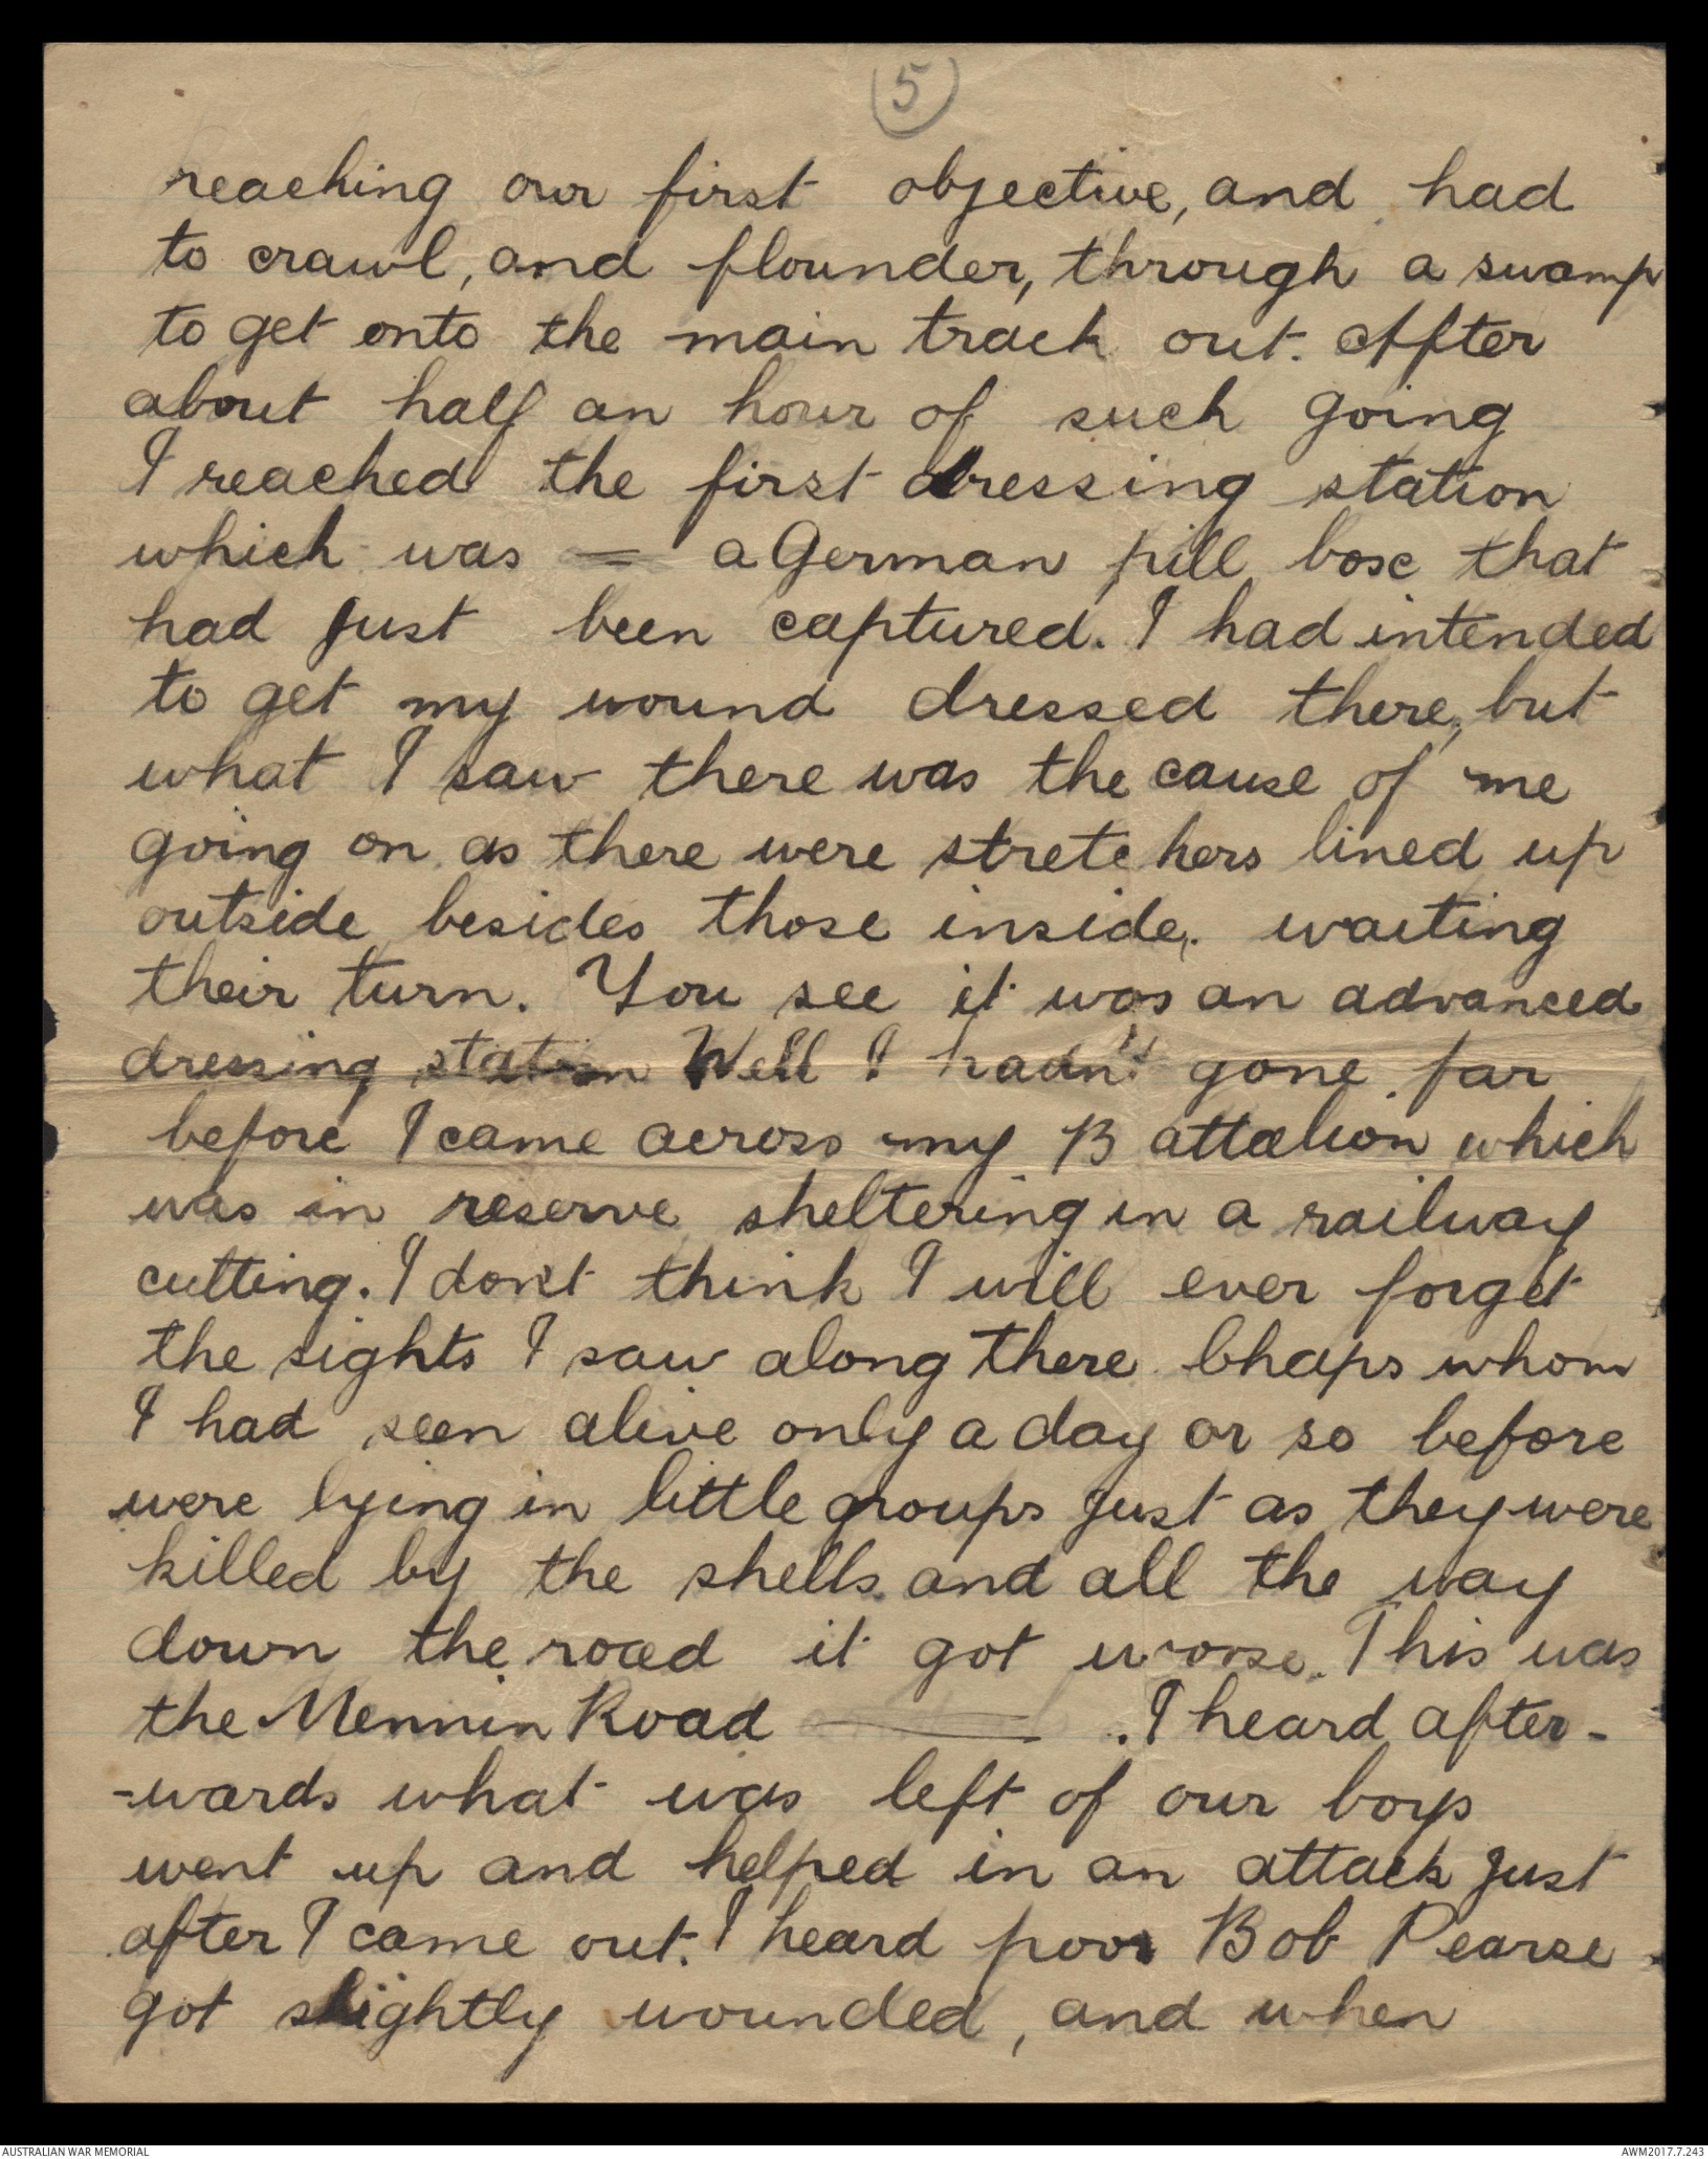 5
reaching our first objective, and had
to crawl, and flounder, through a swamp
to get onto the main track out. After
about half an hour of such going
I reached the first dressing station
which was — a German pill box that
had just been captured. I had intended
to get my wound dressed there, but
what I saw there was the cause of me
going on as there were stretchers lined up
outside besides those inside, waiting
their turn. You see it was an advanced
dressing station Well I hadn't gone far
before I came across my Battalion which
was in reserve sheltering in a railway
cutting. I don't think I will ever forget
the sights I saw along there Chaps whom
I had seen alive only a day or so before
were lying in little groups just as they were
killed by the shells and all the way
down the road it got worse. This was
the Mennin Road — . I heard after-
-wards what was left of our boys
went up and helped in an attack just
after I came out. I heard poor Bob Pearse
got slightly wounded, and when
AUSTRALIAN WAR MEMORIAL
AWM2017.7.243